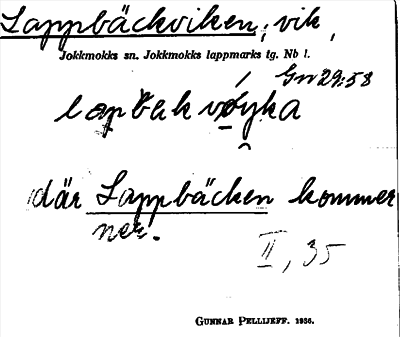 Lappbäckviken, vik,
Jokkmokks sn. Jokkmokks lappmarks tg. Nb l.
Gn 29:58
där Lappbäcken kommer
ner.
II, 35
GUNNAR PELLIJEFF. 1956.